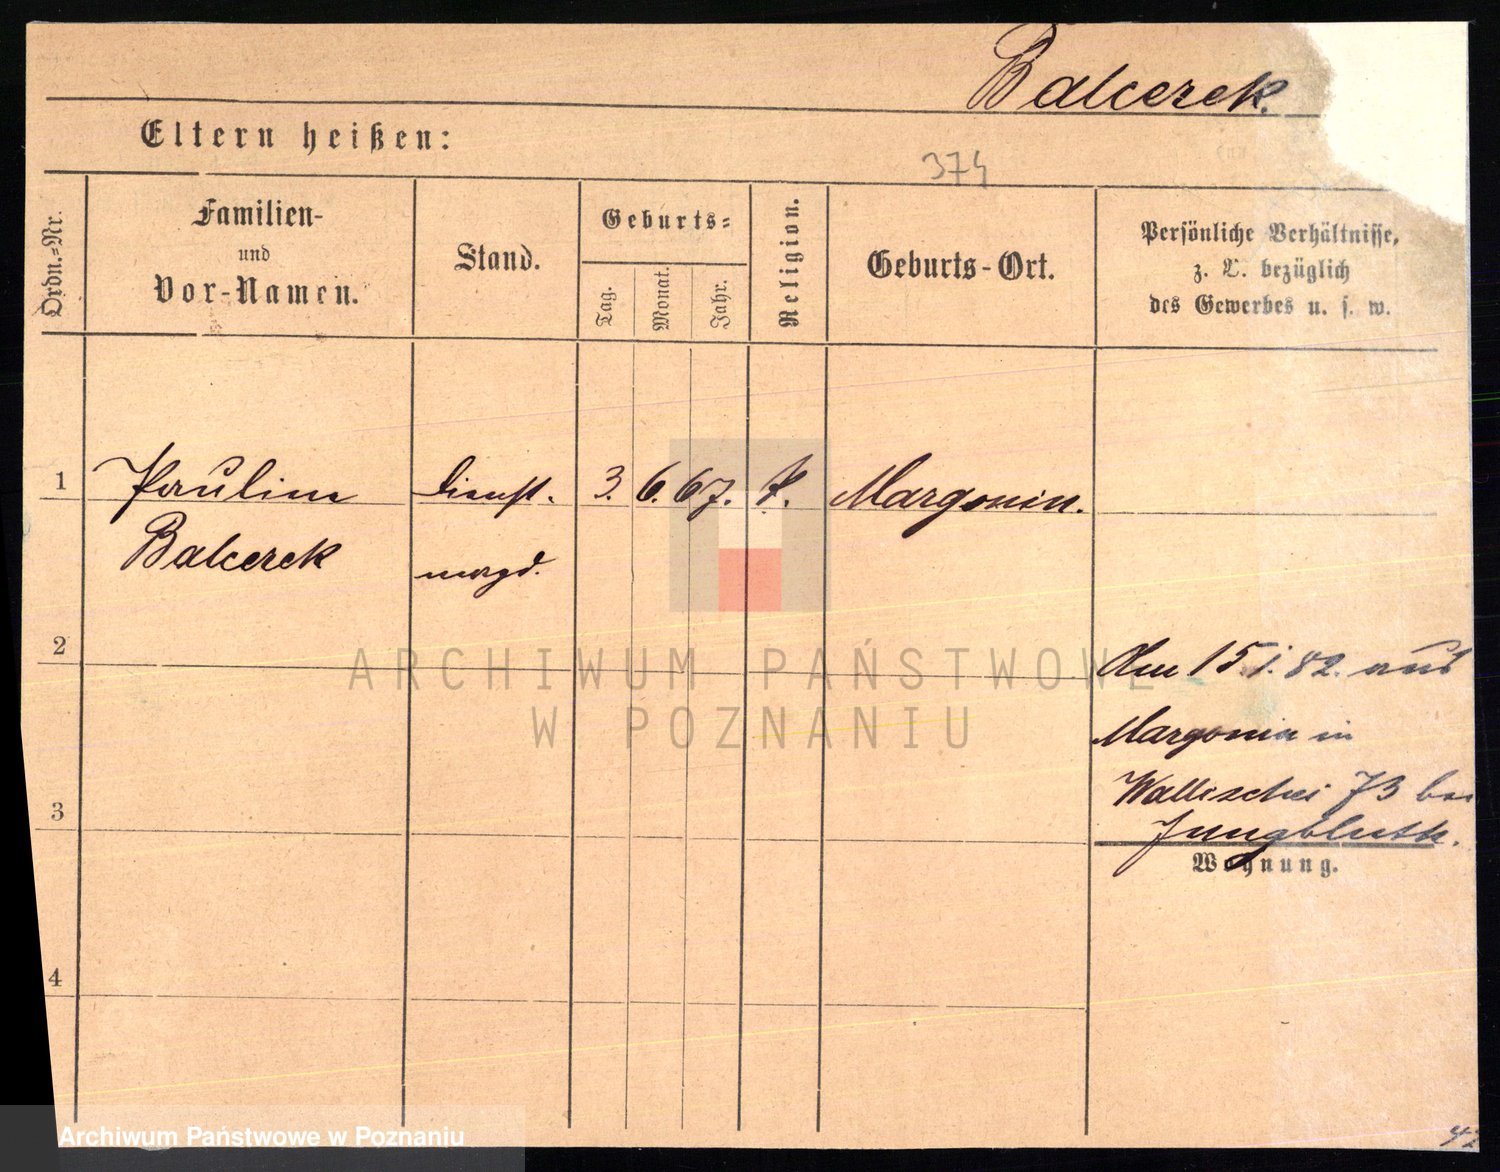 Balcerek.
Eltern heißen:
374
Ordn.-Nr.
Familien-
und
Vor-Namen.
Stand.
Geburts-
Tag.
Monat.
Jahr.
Religion.
Geburts-Ort.
Persönliche Verhältnisse,
z. B. bezüglich
des Gewerbes u. s. w.
1 Pauline Dienst- 3. 6. 67. k. Margonin.
Balcerek magd.
2
Am 15.1.82. aus
Margonin in
3
Wallischei 73 bei
Jungbluth.
Wohnung.
4
ARCHIWUM PAŃSTWOWE
W POZNANIU
Archiwum Państwowe w Poznaniu